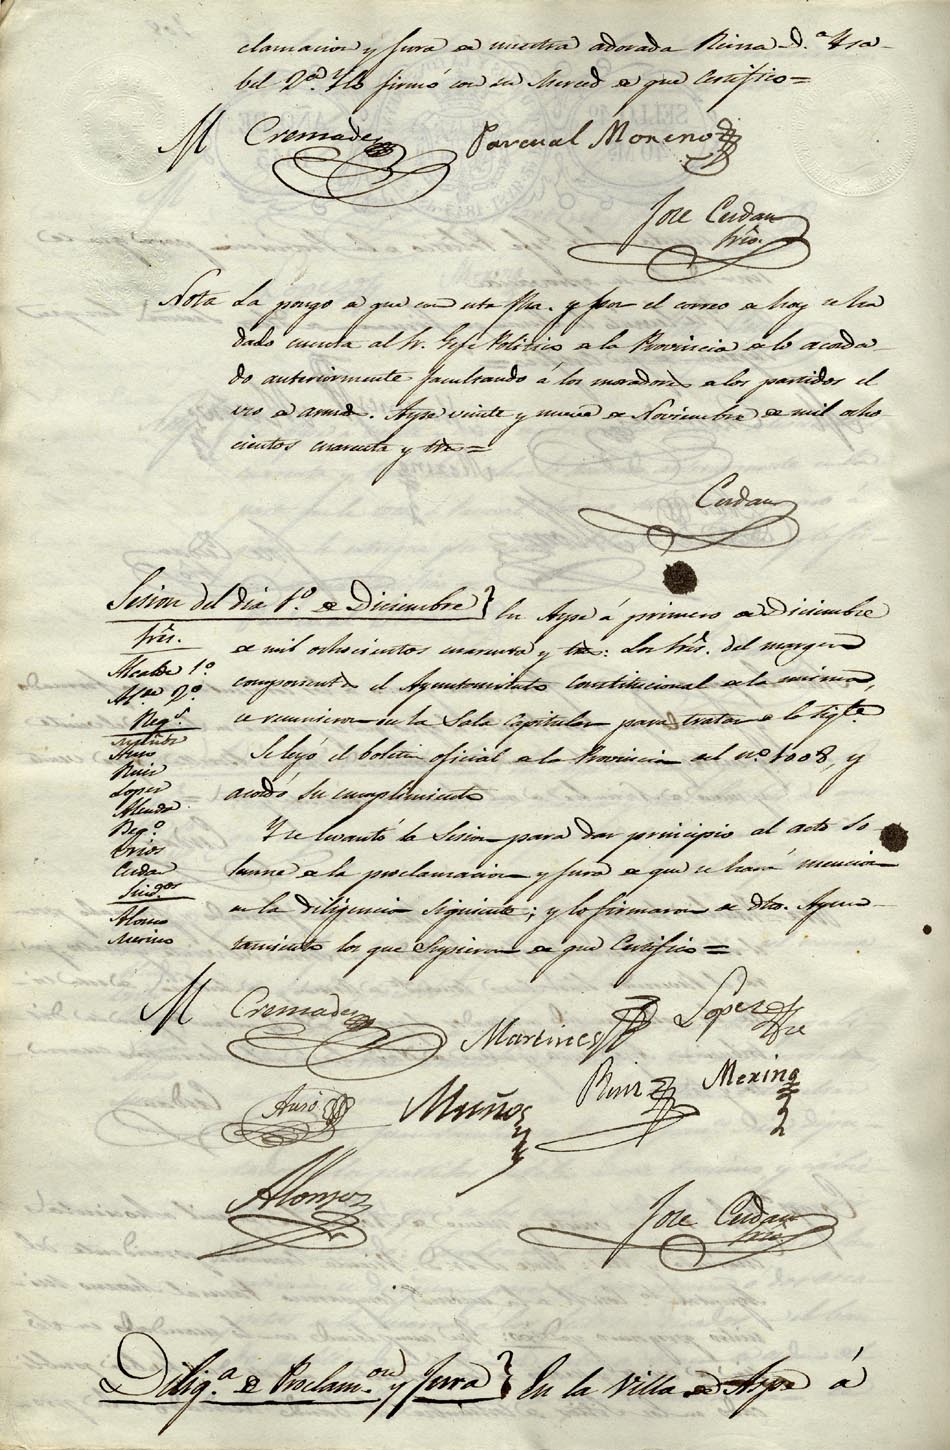 clamacion y Jura de nuestra adorada Reina D.ª Ysa-
bel 2.ª Y lo firmó con su Merced de que Certifico=
M Cremades Pascual Moreno
Jose Cerdan
Srio.
Nota La pongo de que con esta fha. y por el correo de hoy se ha
dado cuenta al Sr. Gefe Politico de la Provincia de lo acorda-
do anteriormente facultando á los moradores de los partidos el
uso de armas. Aspe veinte y nueve de Noviembre de mil ocho
cientos cuarenta y tres=
Cerdan
Sesion del dia 1.º de Diciembre} En Aspe á primero de Diciembre
de mil ochocientos cuarenta y tres: Los Sres. del margen
componentes el Ayuntamiento Constitucional de la misma,
se reunieron en la Sala Capitular para tratar de lo sigte.
Se leyó el boletin oficial de la Provincia del n.º 1008, y
acordó su cumplimiento
Y se levantó la Sesion para dar principio al acto so-
lemne de la proclamacion y Jura de que se hará mencion
en la diligencia siguiente; y lo firmaron de dho. Ayun-
tamiento los que supieron de que Certifico=
Sres.
Alcalde 1.º
Al.de 2.º
Reg.s
Muñoz
Auso
Ruiz
Lopez
Reg.º
Cerdan
Sind.cos
Alonso
Merino
M Cremades Martines Lopez
Auso Muños Ruiz Merino
Alonso Jose Cerdan
Srio.
Dilig.ª de Proclam.on y Jura} En la Villa de Aspe á